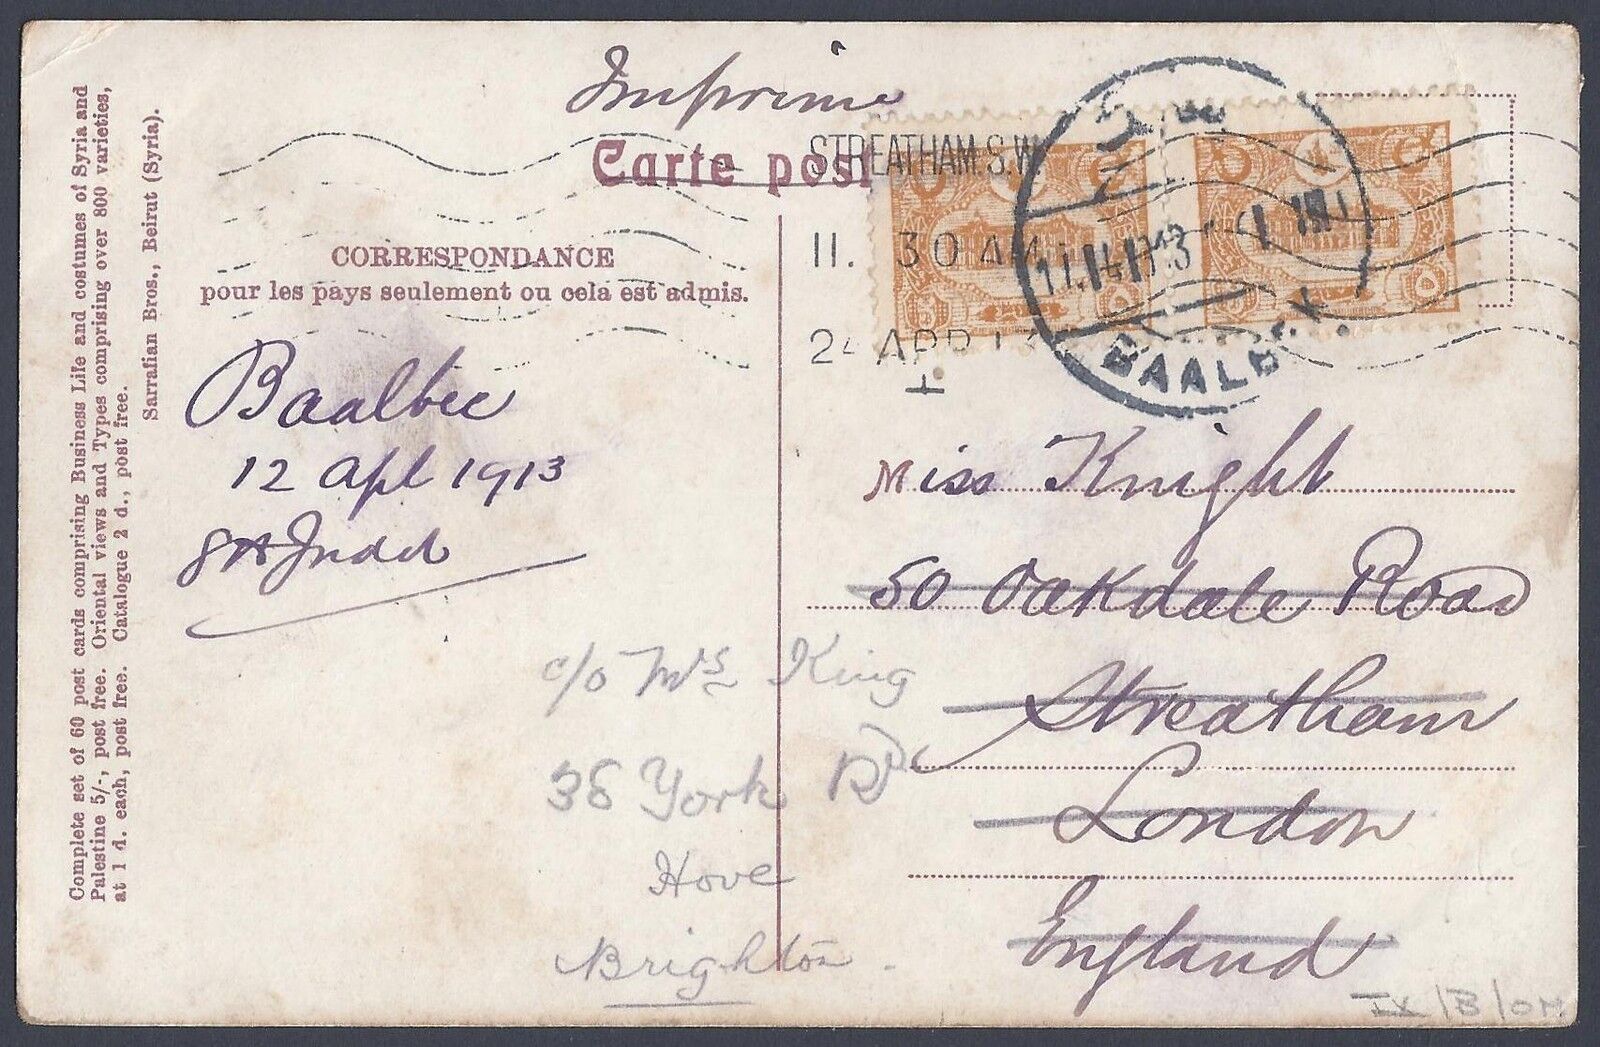 Imprimé
Carte post
STREATHAM. S.W.
11. 30 AM
24 APR 13
BAALBEK
CORRESPONDANCE
pour les pays seulement ou cela est admis.
Baalbec
12 Apl 1913
Judd
Miss Knight
50 Oakdale Road
Streatham
London
England
c/o Mrs King
36 York Rd
Hove
Brighton
IX/B/OM
Complete set of 60 post cards comprising Business Life and costumes of Syria and
Palestine 5/-, post free. Oriental views and Types comprising over 800 varieties,
at 1 d. each, post free. Catalogue 2 d., post free.
Sarrafian Bros., Beirut (Syria).